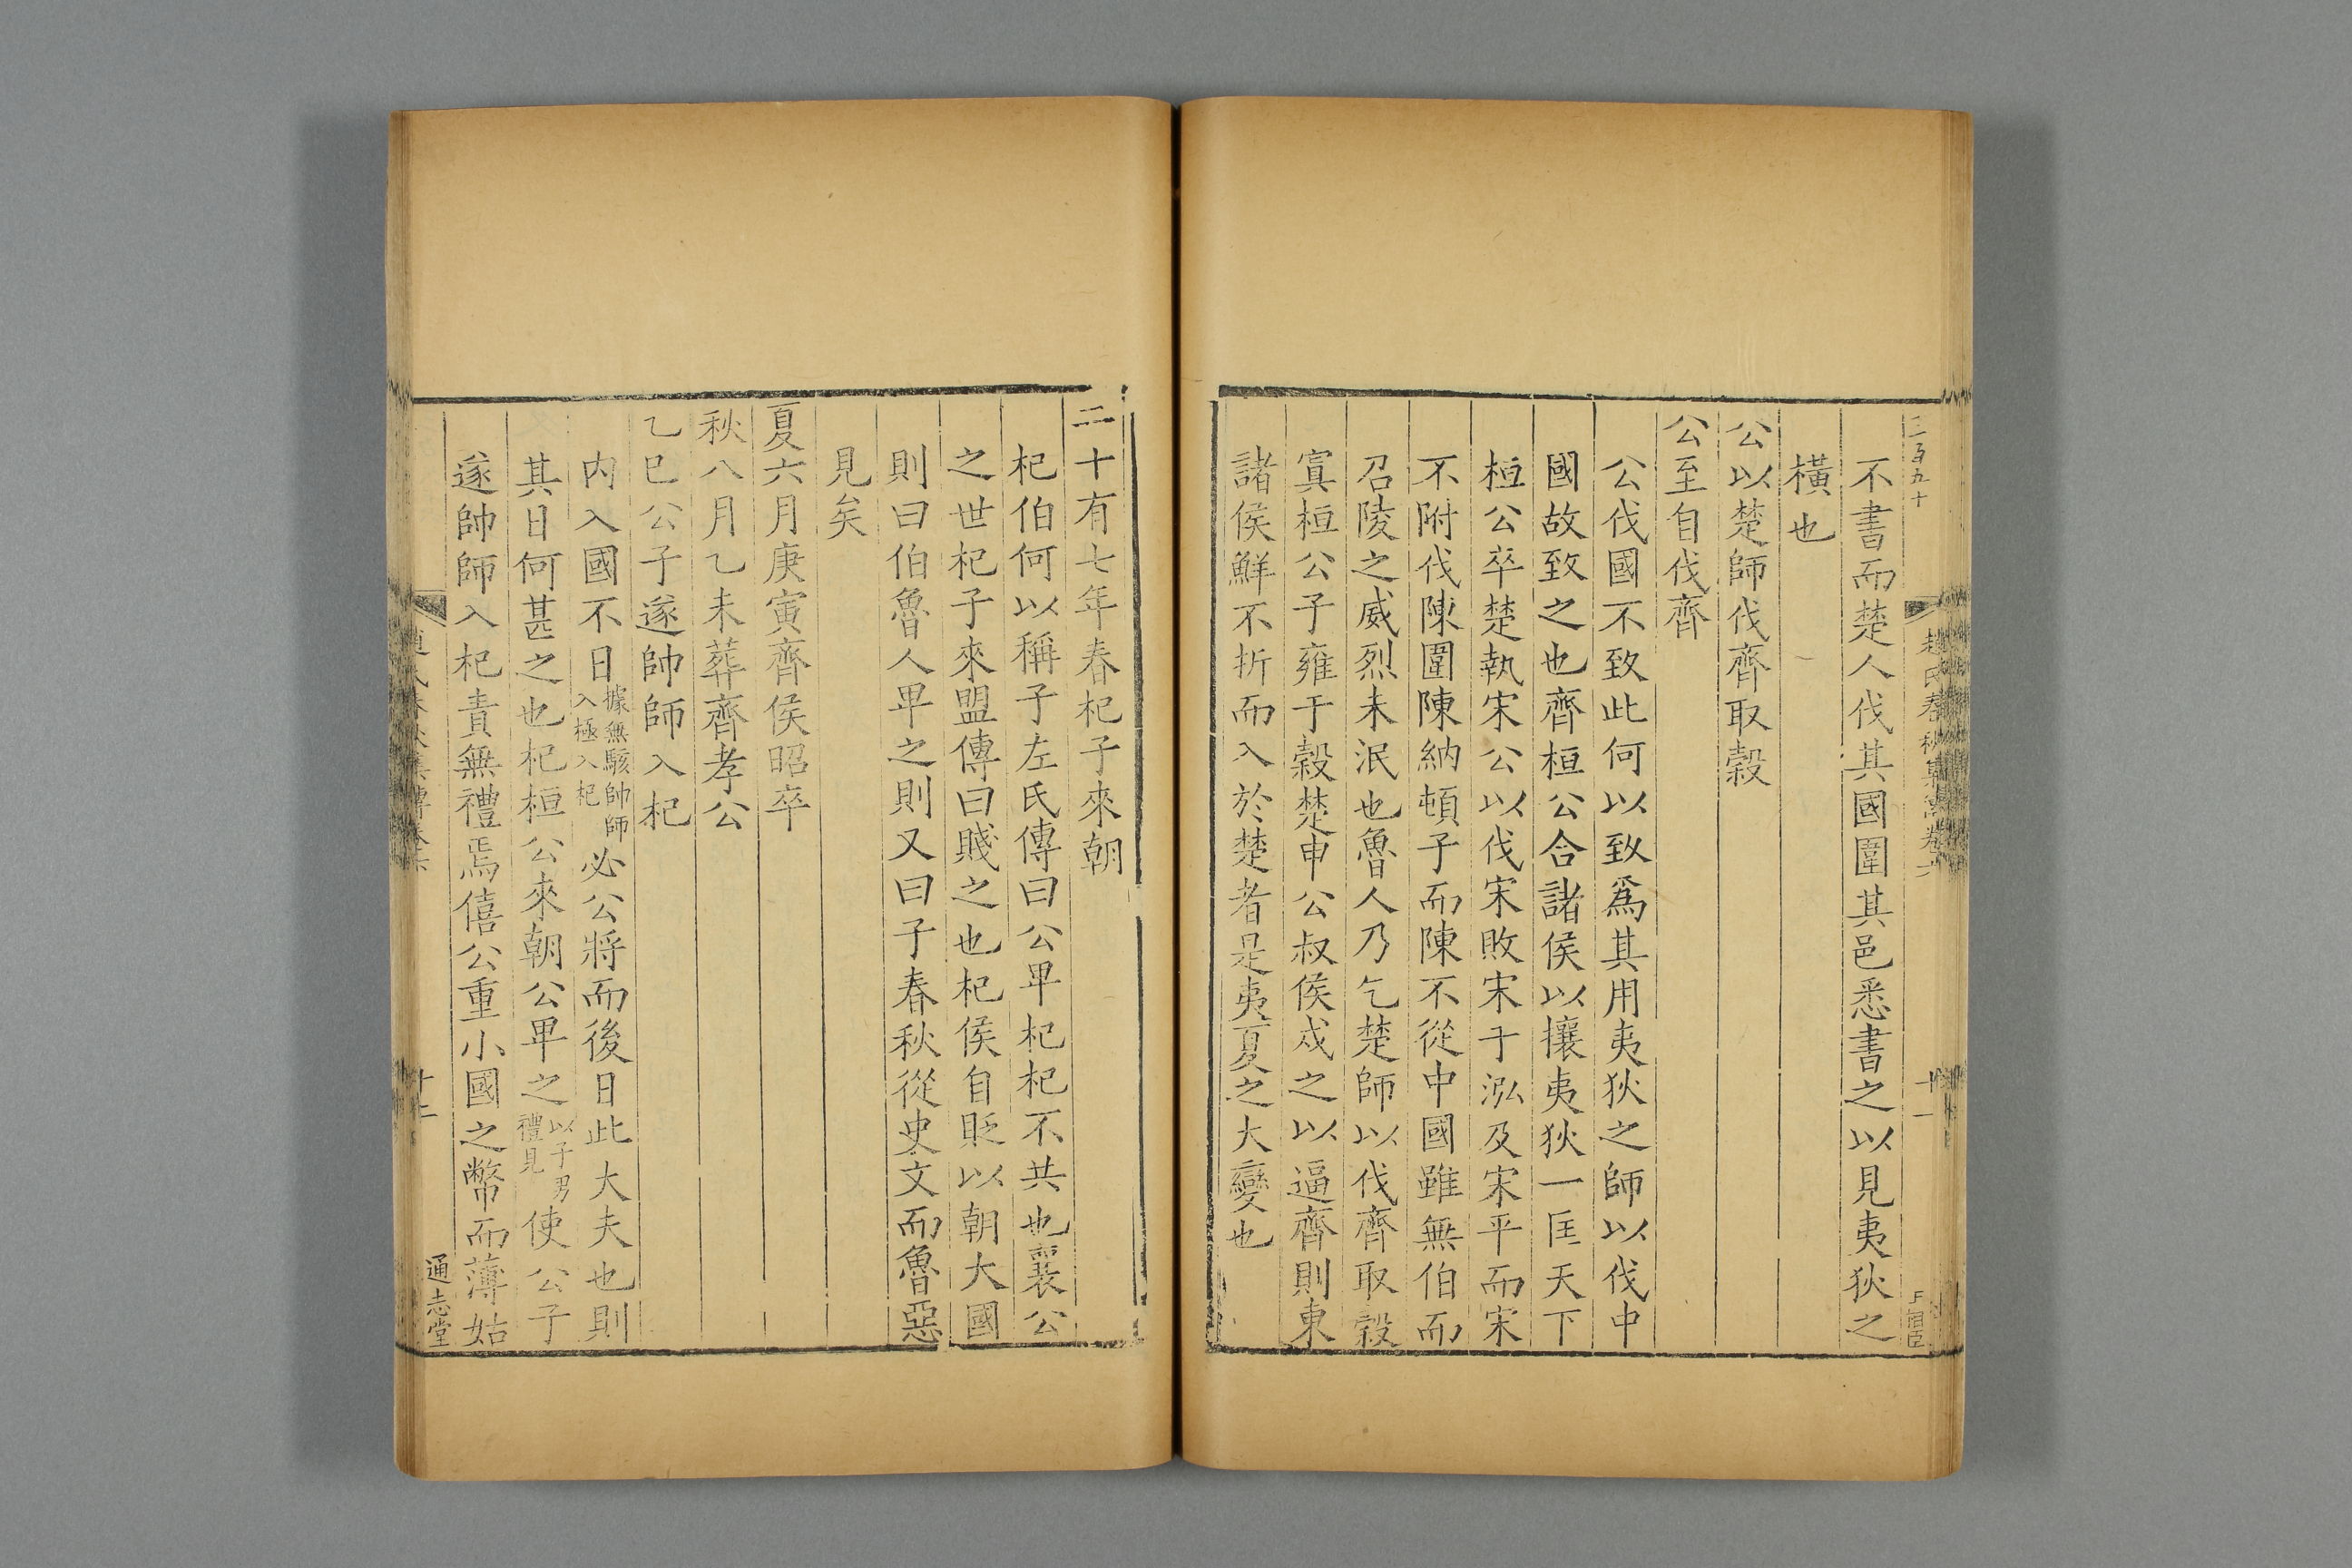 三百五十
不書而楚人伐其國圍其邑悉書之以見夷狄之
橫也
公以楚師伐齊取穀
公至自伐齊
公伐國不致此何以致爲其用夷狄之師以伐中
國故致之也齊桓公合諸侯以攘夷狄一匡天下
桓公卒楚執宋公以伐宋敗宋于泓及宋平而宋
不附伐陳圍陳納頓子而陳不從中國雖無伯而
召陵之威烈未泯也魯人乃乞楚師以伐齊取穀
寘桓公子雍于穀楚申公叔侯戍之以逼齊則東
諸侯鮮不折而入於楚者是夷夏之大變也
二十有七年春杞子來朝
杞伯何以稱子左氏傳曰公卑杞杞不共也襄公
之世杞子來盟傳曰賤之也杞侯自貶以朝大國
則曰伯魯人卑之則又曰子春秋從史文而魯惡
見矣
夏六月庚寅齊侯昭卒
秋八月乙未葬齊孝公
乙巳公子遂帥師入杞
內入國不日據無駭帥師入極入杞必公將而後日此大夫也則
其日何甚之也杞桓公來朝公卑之以子男禮見使公子
遂帥師入杞責無禮焉僖公重小國之幣而薄姑
十二
通志堂